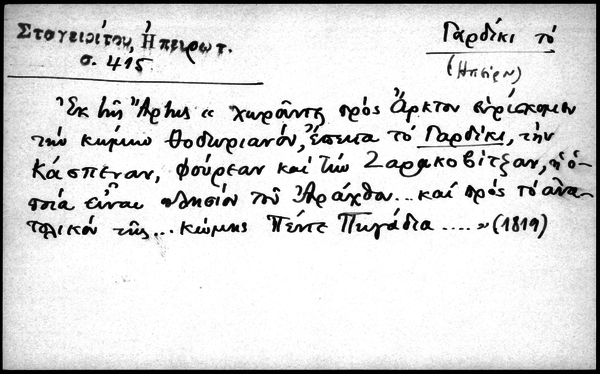 Σταγειρίτου, Ἠπειρωτ.
σ. 415
Γαρδίκι τό
(Ηπείρου)
Ἐκ τῆς Ἄρτης « χωροῦντες πρὸς Ἄρκτον εὑρίσκομεν
τὴν κώμην Θοδωριανόν, ἔπειτα τὸ Γαρδίκι, τὴν
Κάσπεναν, φούρεαν καὶ τὴν Ζαρακοβίτζαν, ἡ ὁ-
ποία εἶναι πλησίον τοῦ Ἀράχθου... καὶ πρὸς τὸ ἀνα-
τολικόν τῆς... κώμης Πέντε Πηγάδια .... » (1819)